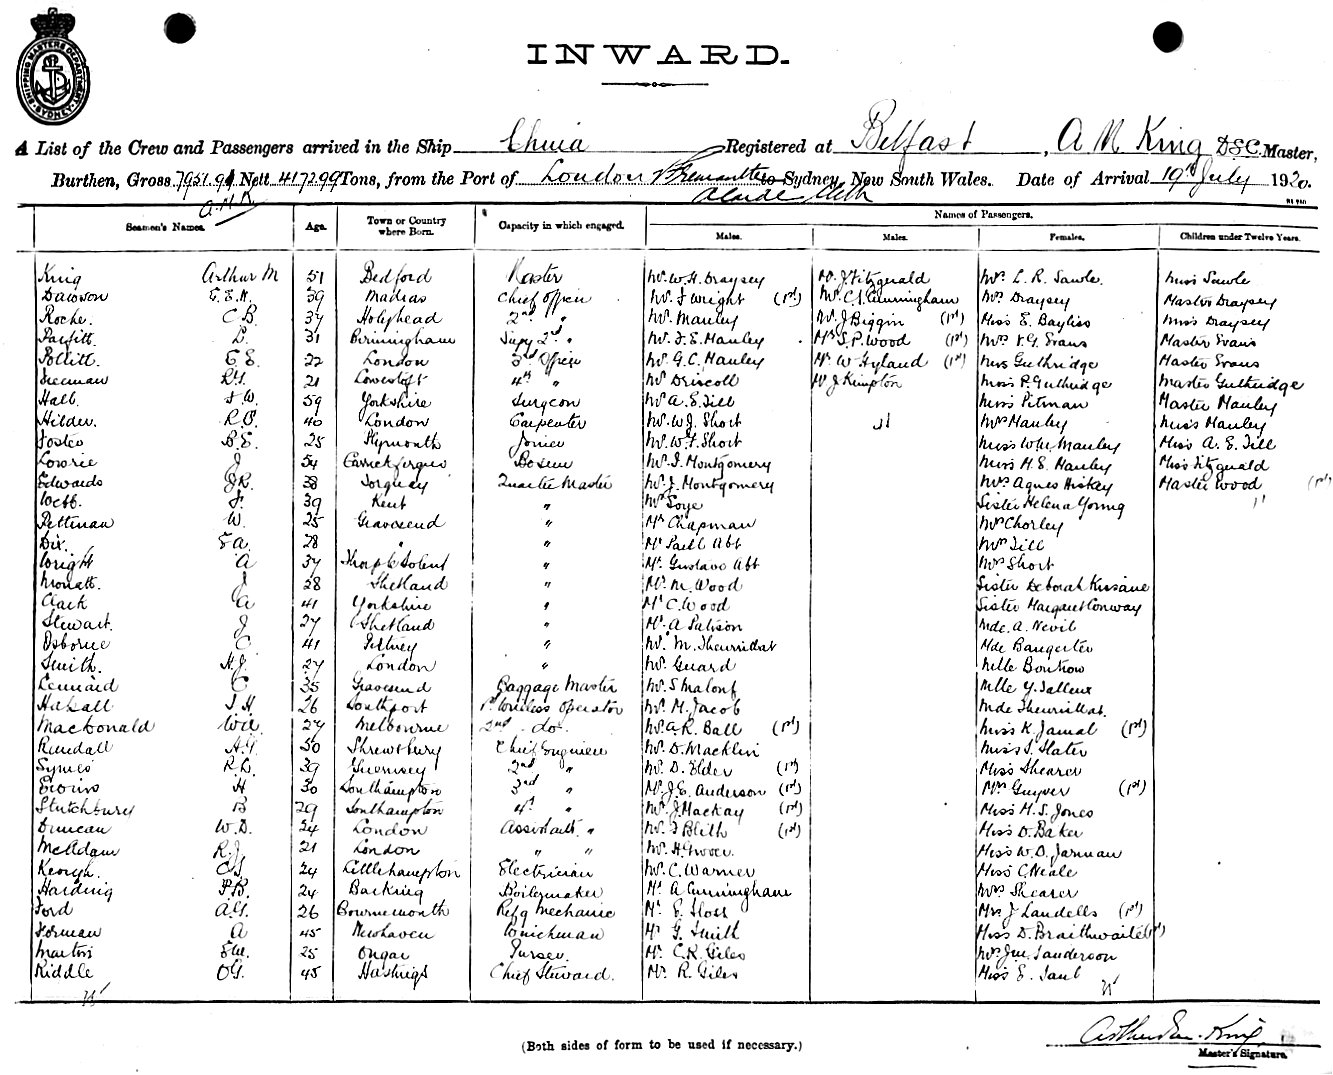 SHIPPING MASTERS DEPARTMENT SYDNEY
INWARD.
A List of the Crew and Passengers arrived in the Ship China Registered at Belfast, A M King D.S.C. Master,
Burthen, Gross 7951.94 Nett 4172.99 Tons, from the Port of London Fremantle to Sydney, New South Wales. Date of Arrival 19th July 1920.
A.M.K
Seamen's Names. Age. Town or Country where Born. Capacity in which engaged. Names of Passengers.
Males. Males. Females. Children under Twelve Years.
King Arthur M 51 Bedford Master Mr. W.H. Draysey Mr. J Fitzgerald Mrs. L. R. Sawle. Miss Sawle
Dawson G.E.H. 39 Madras Chief Officer Mr. J Wright (1st) Mr. C.J. Cunningham Mrs Draysey Master Draysey
Roche. C B. 37 Holyhead 2nd " Mr. Manley Mr. J Biggin (1st) Miss E. Bayliss Miss Draysey
Parfitt. L. 31 Birmingham Supy 2nd " Mr. F. E. Manley Mr S.P. Wood (1st) Mrs. V.G. Evans Master Evans
Pollitt. E E. 22 London 3rd Officer Mr. G.C. Manley Mr. W Hyland (1st) Mrs Guthridge Master Evans
Freeman 21 Lowestoft 4th " Mr Driscoll Mr J Kimpton Miss P. Guthridge Master Guthridge
Hall. F W. 59 Yorkshire Surgeon Mr A. E. Till Miss Pitman Master Manley
Hilder. R.P. 40 London Carpenter Mr. W J. Short Mrs Manley Miss Manley
Foster B.E. 25 Plymouth Joiner Mr. W.F. Short Miss W.M. Manley Miss A. E. Till
Lowrie J 54 Carrickfergus Bosun Mr. S. Montgomery Miss M.E. Manley Miss Fitzgerald
Edwards J.R. 38 Torquay Quarter Master Mr. J. Montgomery Mrs Agnes Hickey Master Wood (1st)
Webb. F. 39 Kent " Mr Soye Sister Helena Young
Pettman W. 25 Gravesend " Mr Chapman Mrs Chorley
Dix. E A. 28 " " Mr Abt Mrs Till
Wright A 37 " Mr. Gustave Abt Mrs Short
J 28 Shetland " Mr. M. Wood Sister Deborah Kissane
Clark G 41 Yorkshire " Mr C. Wood Sister Margaret Conway
Stewart. J 27 Shetland " Mr. A Mde. A. Nevil
Osborne C. 41 " Mr. M. Theurillat Mde Bangerter
Smith. H.J. 27 London " Mr. Guard Mlle Boutrow
Lennard C 35 Gravesend Baggage Master Mr. S Malouf Mlle Y. Talleux
Halsall J H. 26 Southport 1st Wireless Operator Mr. M. Jacob Mde Theurillat.
Macdonald 27 Melbourne 2nd do. Mr. A R. Ball (1st) Miss K. Jamal (1st)
Rundall A.G. 50 Shrewsbury Chief Engineer Mr. D. Macklin Miss S. Slater
Symes R.L. 39 Guernsey 2nd " Mr. D. Elder (1st) Miss Shearer
H 30 Southampton 3rd " Mr. J.E. Anderson (1st) Mrs Guyver (1st)
Stutchbury B 29 Southampton 4th " Mr. J. Mackay (1st) Miss M. S. Jones
Duncan W.D. 24 London Assistant. " Mr. J Blith (1st) Miss D. Baker
McAdam R.J. 21 London " " Mr. H. Grover. Miss W. D. Jarman
Keough. C S. 24 Littlehampton Electrician Mr. C. Warner Miss C. Neale
Harding P.B. 24 Barking Boilermaker Mr. A Cunningham Mrs Shearer
Ford A.G. 26 Bournemouth Refg Mechanic Mr. E. Mrs J Landells (1st)
Forman A 45 Newhaven Winchman Mr G. Smith Miss D. Braithwaite (1st)
Martin 25 Ongar Purser. Mr. C.R. Giles Mrs. Sanderson
Riddle O G. 45 Hastings Chief Steward. Mr. R. Giles Miss E.
(Both sides of form to be used if necessary.)
King.
Master's Signature.